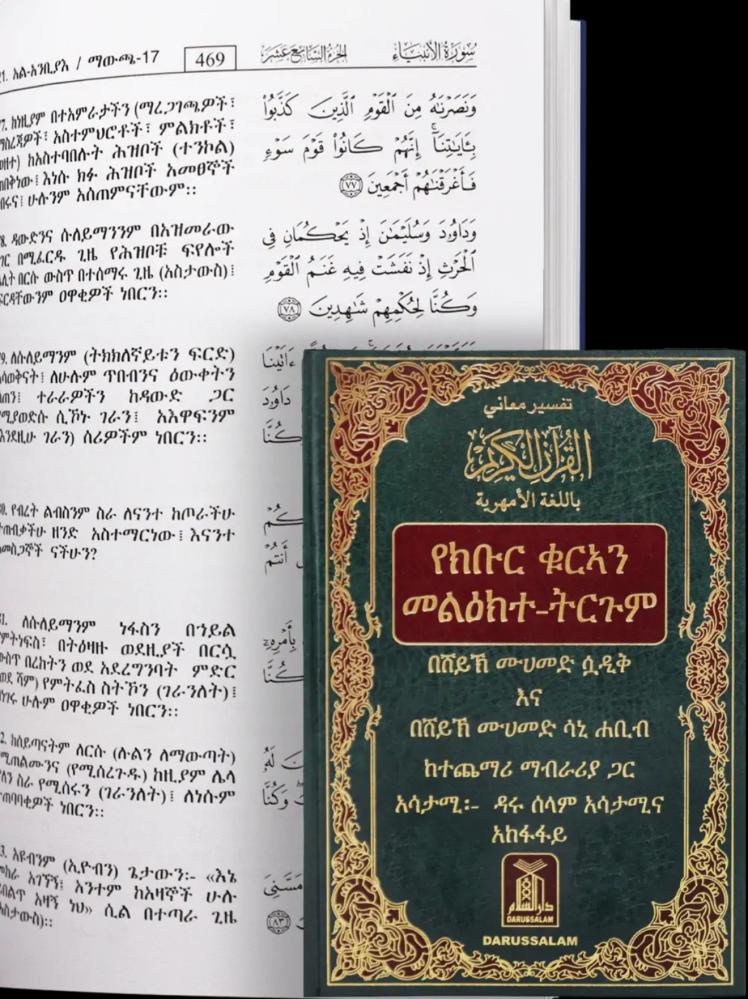 አል-አንቢያእ / ማውጫ-17 469 الجزء السابع عشر سورة الأنبياء
ከነዚያም በተአምራታችን (ማረጋገጫዎች፣
አስተምህሮቶች፣ ምልክቶች፣
ከአስተባበሉት ሕዝቦች (ተንኮል)
እነሱ ክፉ ሕዝቦች አመፀኞች
ሁሉንም አሰጠምናቸውም፡፡
ዳውድንና ሱለይማንንም በአዝመራው
በሚፈርዱ ጊዜ የሕዝቦቹ ፍየሎች
በርሱ ውስጥ በተሰማሩ ጊዜ (አስታውስ)፤
ዐዋቂዎች ነበርን፡፡
ለሱለይማንም (ትክክለኛይቱን ፍርድ)
ለሁሉም ጥበብንና ዕውቀትን
ተራራዎችን ከዳውድ ጋር
ሲኾኑ ገራን፤ አእዋፍንም
ገራን) ሰሪዎችም ነበርን፡፡
የብረት ልብስንም ስራ ለናንተ ከጦራችሁ
ዘንድ አስተማርነው፤ እናንተ
ናችሁን?
ለሱለይማንም ነፋስን በኀይል
በትዕዛዙ ወደዚያች በርሷ
በረከትን ወደ አደረግንባት ምድር
የምትፈስ ስትኾን (ገራንለት)፤
ሁሉም ዐዋቂዎች ነበርን፡፡
ከሰይጣናትም ለርሱ (ሉልን ለማውጣት)
(የሚሰረጉዱ) ከዚያም ሌላ
ስራ የሚሰሩን (ገራንለት)፤ ለነሱም
ነበርን፡፡
አዩብንም (ኢዮብን) ጌታውን፡- «እኔ
አገኘኝ፤ አንተም ከአዛኞች ሁሉ
አዛኝ ነህ» ሲል በተጣራ ጊዜ
ونصرنه من القوم الذين كذبوا
بـايتنا إنهم كانوا قوم سوء
فأغرقنهم أجمعين ٧٧
وداوود وسليمن إذ يحكمان في
الحرث إذ نفشت فيه غنم القوم
وكنا لحكمهم شهدين ٧٨
ءاتينا
داوود
وكنا
أنتم
بأمره
وكنا
له
وكنا
مسني
٨٣
تفسير معاني
القرآن الكريم
باللغة الأمهرية
የክቡር ቁርኣን
መልዕክተ-ትርጉም
በሸይኽ ሙሀመድ ሷዲቅ
እና
በሸይኽ ሙሀመድ ሳኒ ሐቢብ
ከተጨማሪ ማብራሪያ ጋር
አሳታሚ፡- ዳሩ ሰላም አሳታሚና
አከፋፋይ
دار السلام
DARUSSALAM
DARUSSALAM